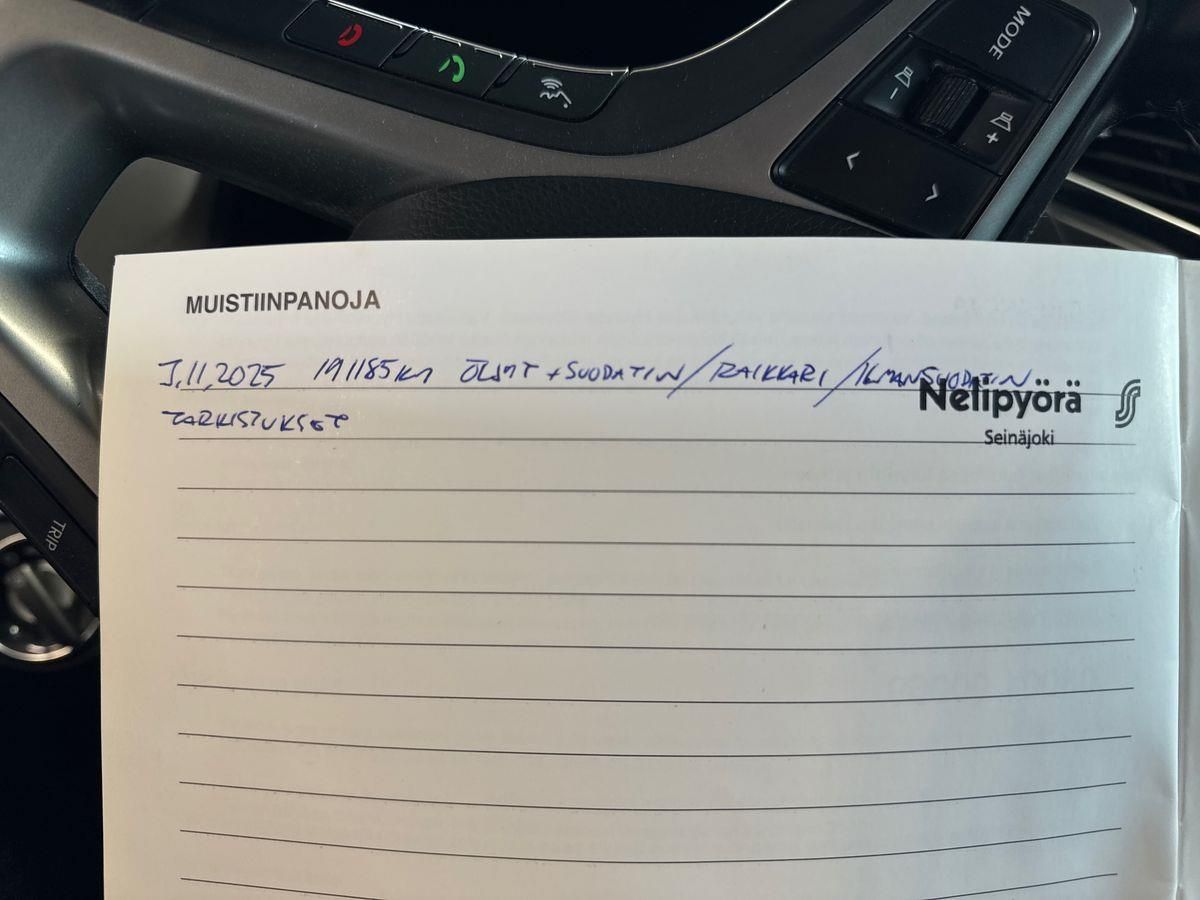 MODE
TRIP
MUISTIINPANOJA
3.11.2025 191185KM ÖLJYT + SUODATIN / RAIKKARI / ILMANSUODATIN
TARKISTUKSET
Nelipyörä
Seinäjoki